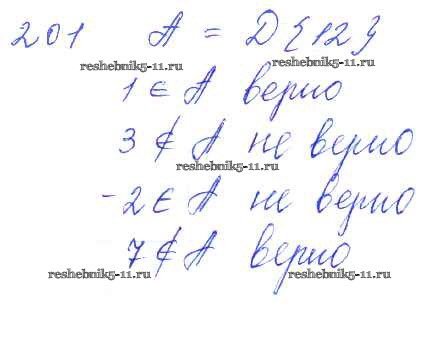 201 A = D{12}
reshebnik5-11.ru
1 ∈ A верно
3 ∉ A не верно
reshebnik5-11.ru
-2 ∈ A не верно
7 ∉ A верно
reshebnik5-11.ru reshebnik5-11.ru